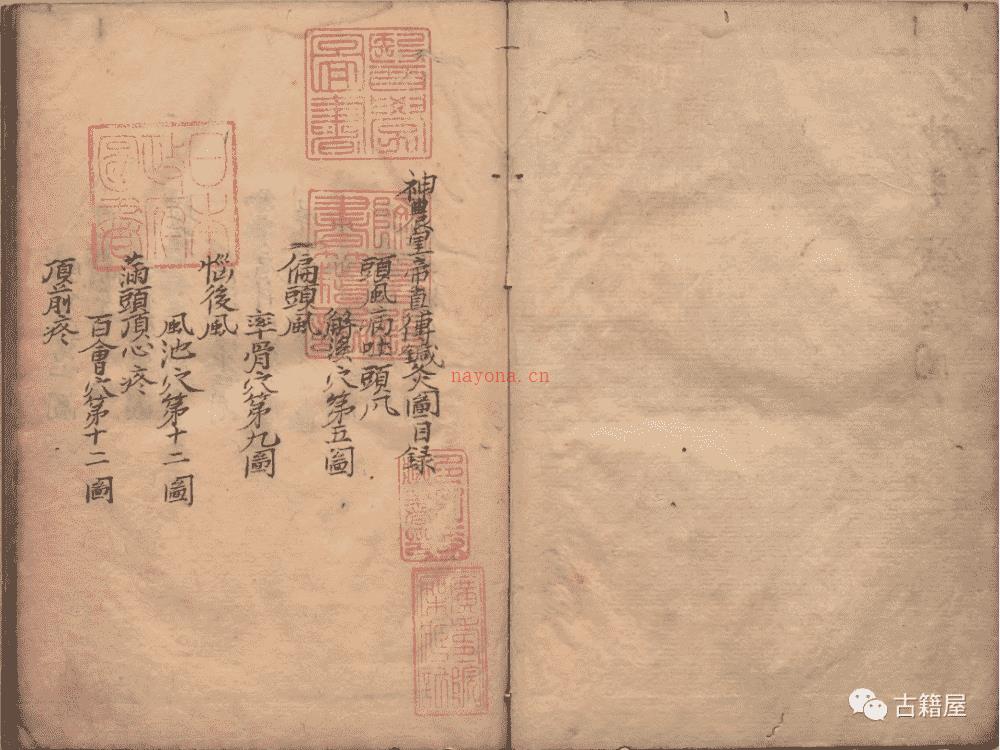 神農皇帝直傳鍼灸圖目録
頭風病吐頭風
解溪穴第五圖
一偏頭風
率骨穴第九圖
惱後風
風池穴第十二圖
滿頭頂心疼
百會穴第十二圖
頂前疼
醫學圖書
日本
nayona.cn
古籍屋